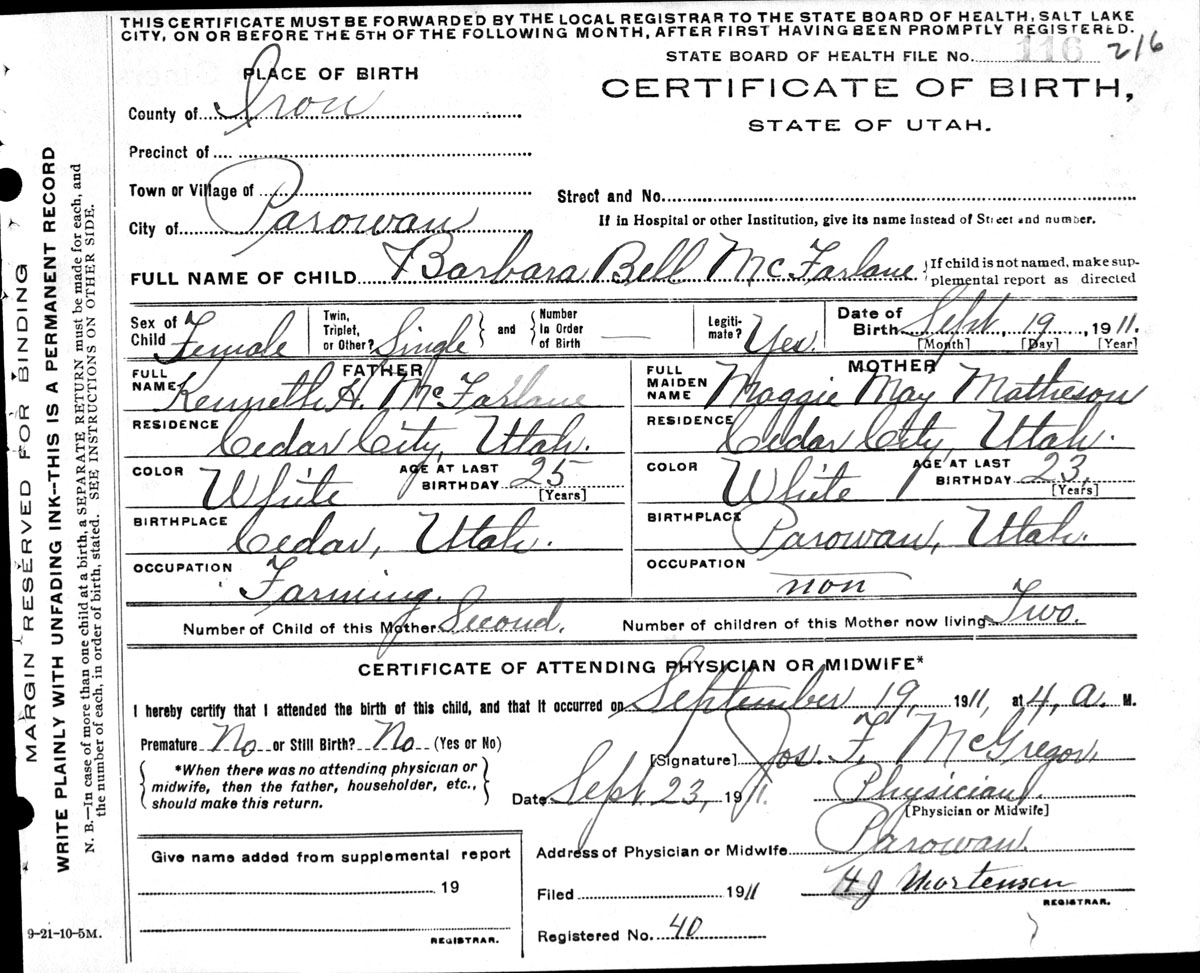 THIS CERTIFICATE MUST BE FORWARDED BY THE LOCAL REGISTRAR TO THE STATE BOARD OF HEALTH, SALT LAKE
CITY, ON OR BEFORE THE 5TH OF THE FOLLOWING MONTH, AFTER FIRST HAVING BEEN PROMPTLY REGISTERED.
STATE BOARD OF HEALTH FILE No. 116 216
PLACE OF BIRTH
CERTIFICATE OF BIRTH,
STATE OF UTAH.
County of Iron
Precinct of
Town or Village of
Street and No.
City of Parowan
If in Hospital or other Institution, give its name instead of Street and number.
FULL NAME OF CHILD Barbara Bell McFarlane {If child is not named, make sup-
plemental report as directed
Sex of Child Female Twin, Triplet, or Other? Single } and { Number In Order of Birth — Legiti-mate? Yes. Date of Birth Sept, 19, 1911.
[Month] [Day] [Year]
FATHER
FULL NAME Kenneth H. McFarlane
RESIDENCE Cedar City, Utah.
COLOR White AGE AT LAST BIRTHDAY 25
[Years]
BIRTHPLACE Cedar, Utah.
OCCUPATION Farming.
MOTHER
FULL MAIDEN NAME Maggie May Matheson
RESIDENCE Cedar City, Utah.
COLOR White AGE AT LAST BIRTHDAY 23,
[Years]
BIRTHPLACE Parowan, Utah.
OCCUPATION non
Number of Child of this Mother Second. Number of children of this Mother now living Two.
CERTIFICATE OF ATTENDING PHYSICIAN OR MIDWIFE*
I hereby certify that I attended the birth of this child, and that it occurred on September 19, 1911, at 4, a. M.
Premature No or Still Birth? No (Yes or No)
[Signature] Jos. F. McGregor,
{ *When there was no attending physician or
midwife, then the father, householder, etc.,
should make this return. }
Date Sept 23, 1911. Physician.
[Physician or Midwife]
Address of Physician or Midwife Parowan.
Give name added from supplemental report
19
REGISTRAR.
Filed 1911 H J Mortensen
REGISTRAR.
Registered No. 40
9-21-10-5M.
MARGIN RESERVED FOR BINDING
WRITE PLAINLY WITH UNFADING INK--THIS IS A PERMANENT RECORD
N. B.—In case of more than one child at a birth, a SEPARATE RETURN must be made for each, and
the number of each, in order of birth, stated. SEE INSTRUCTIONS ON OTHER SIDE.